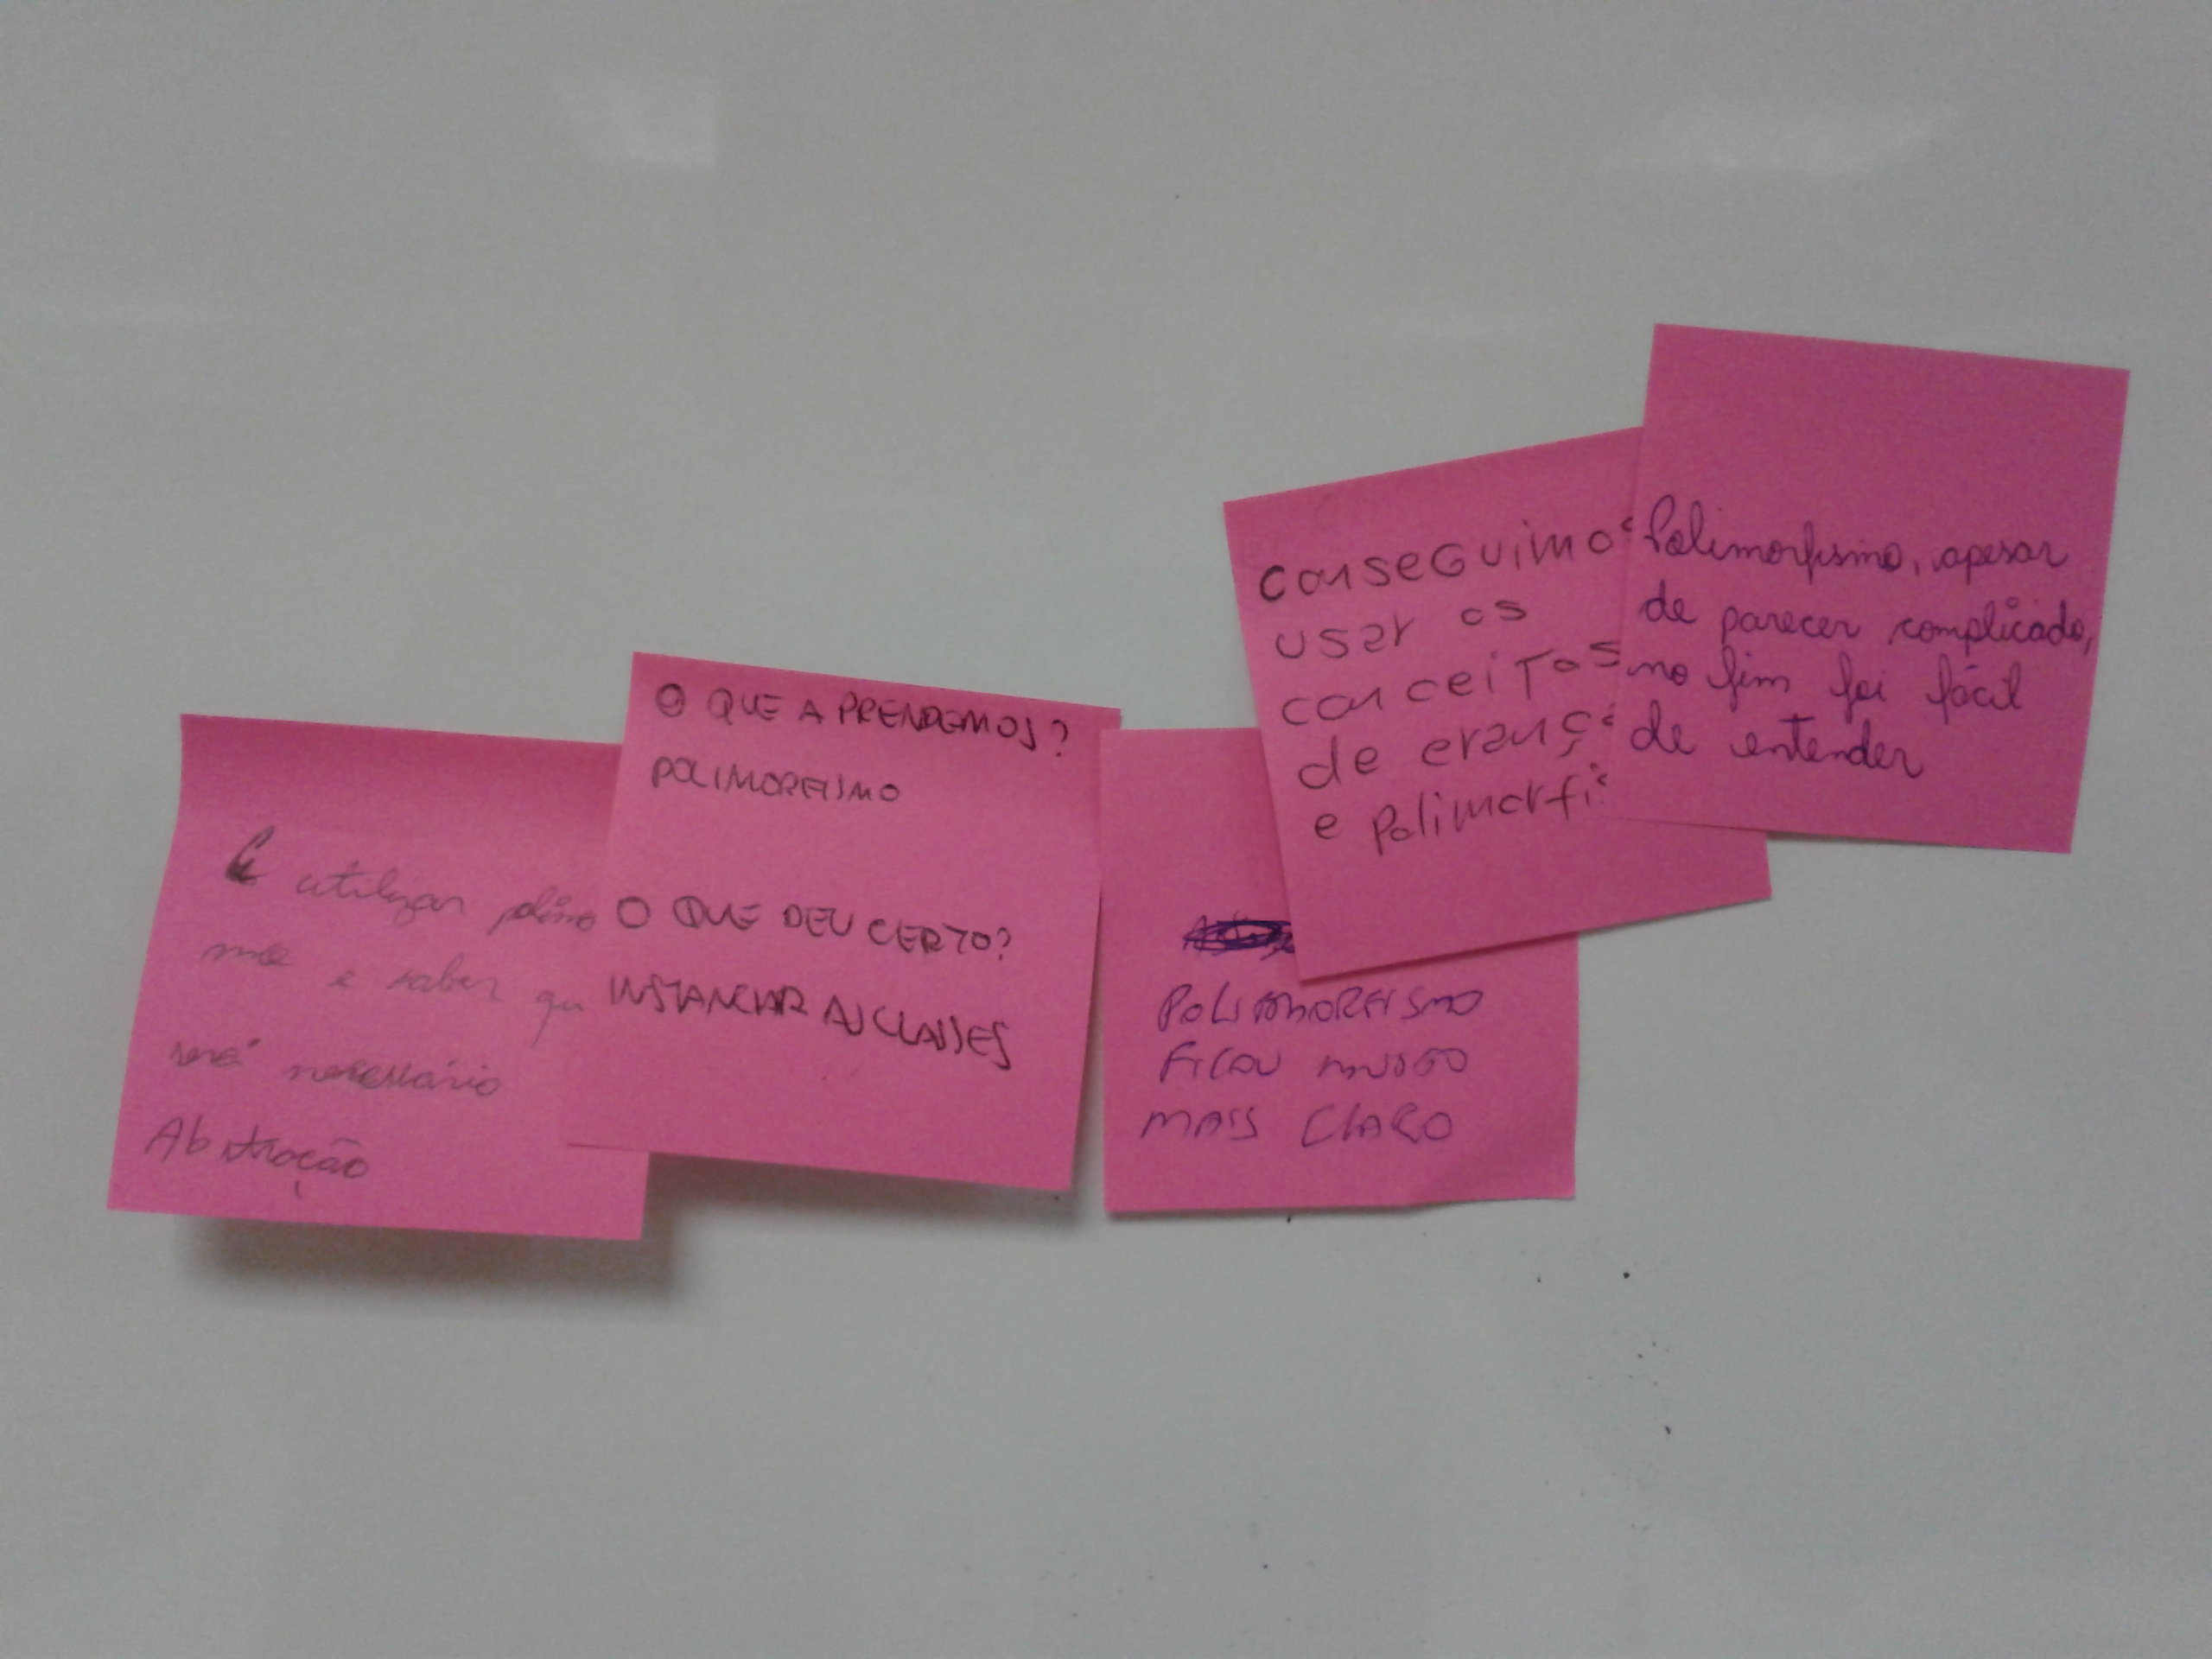 utilizar
e saber qu
será necessário
Abstração
O QUE APRENDEMOS?
POLIMORFISMO
O QUE DEU CERTO?
INSTANCIAR AS CLASSES
POLIMORFISMO
FICOU MUITO
MAIS CLARO
conseguimos
usar os
conceitos
de erança
e polimorfi
Polimorfismo, apesar
de parecer complicado,
no fim foi fácil
de entender